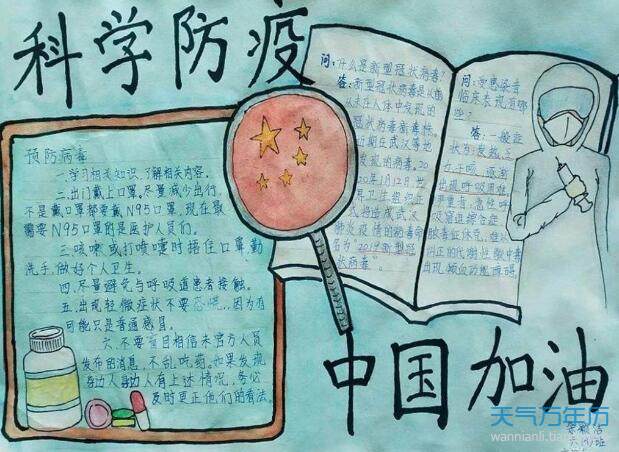 科学防疫
预防病毒
一.学习相关知识,了解相关内容。
二.出门戴上口罩,尽量减少出行,
不是戴口罩都要戴N95口罩,现在最
需要N95口罩的是医护人员们。
三.咳嗽或打喷嚏时捂住口罩,勤
洗手,做好个人卫生。
四.尽量避免与呼吸道患者接触。
五.出现轻微症状不要恐慌,因为有
可能只是普通感冒。
六.不要盲目相信未官方人员
发布的消息,不乱吃药,如果发现
身边人身边人有上述情况,务必
及时更正他们的看法。
问:什么是新型冠状病毒?
答:新型冠状病毒是以前
从未在人体中发现的
冠状病毒新毒株。
近期在武汉等地
发现的病毒。20
20年1月12日,世
界卫生组织正
式将造成武汉
肺炎疫情的病毒命
名为"2019新型冠
状病毒"。
问:患感染者
临床表现有哪
些?
答:一般症
状有:发热、乏
力、干咳、逐渐
出现呼吸困难
中国加油
天气万年历
wannianli.tianqi
六(4)班